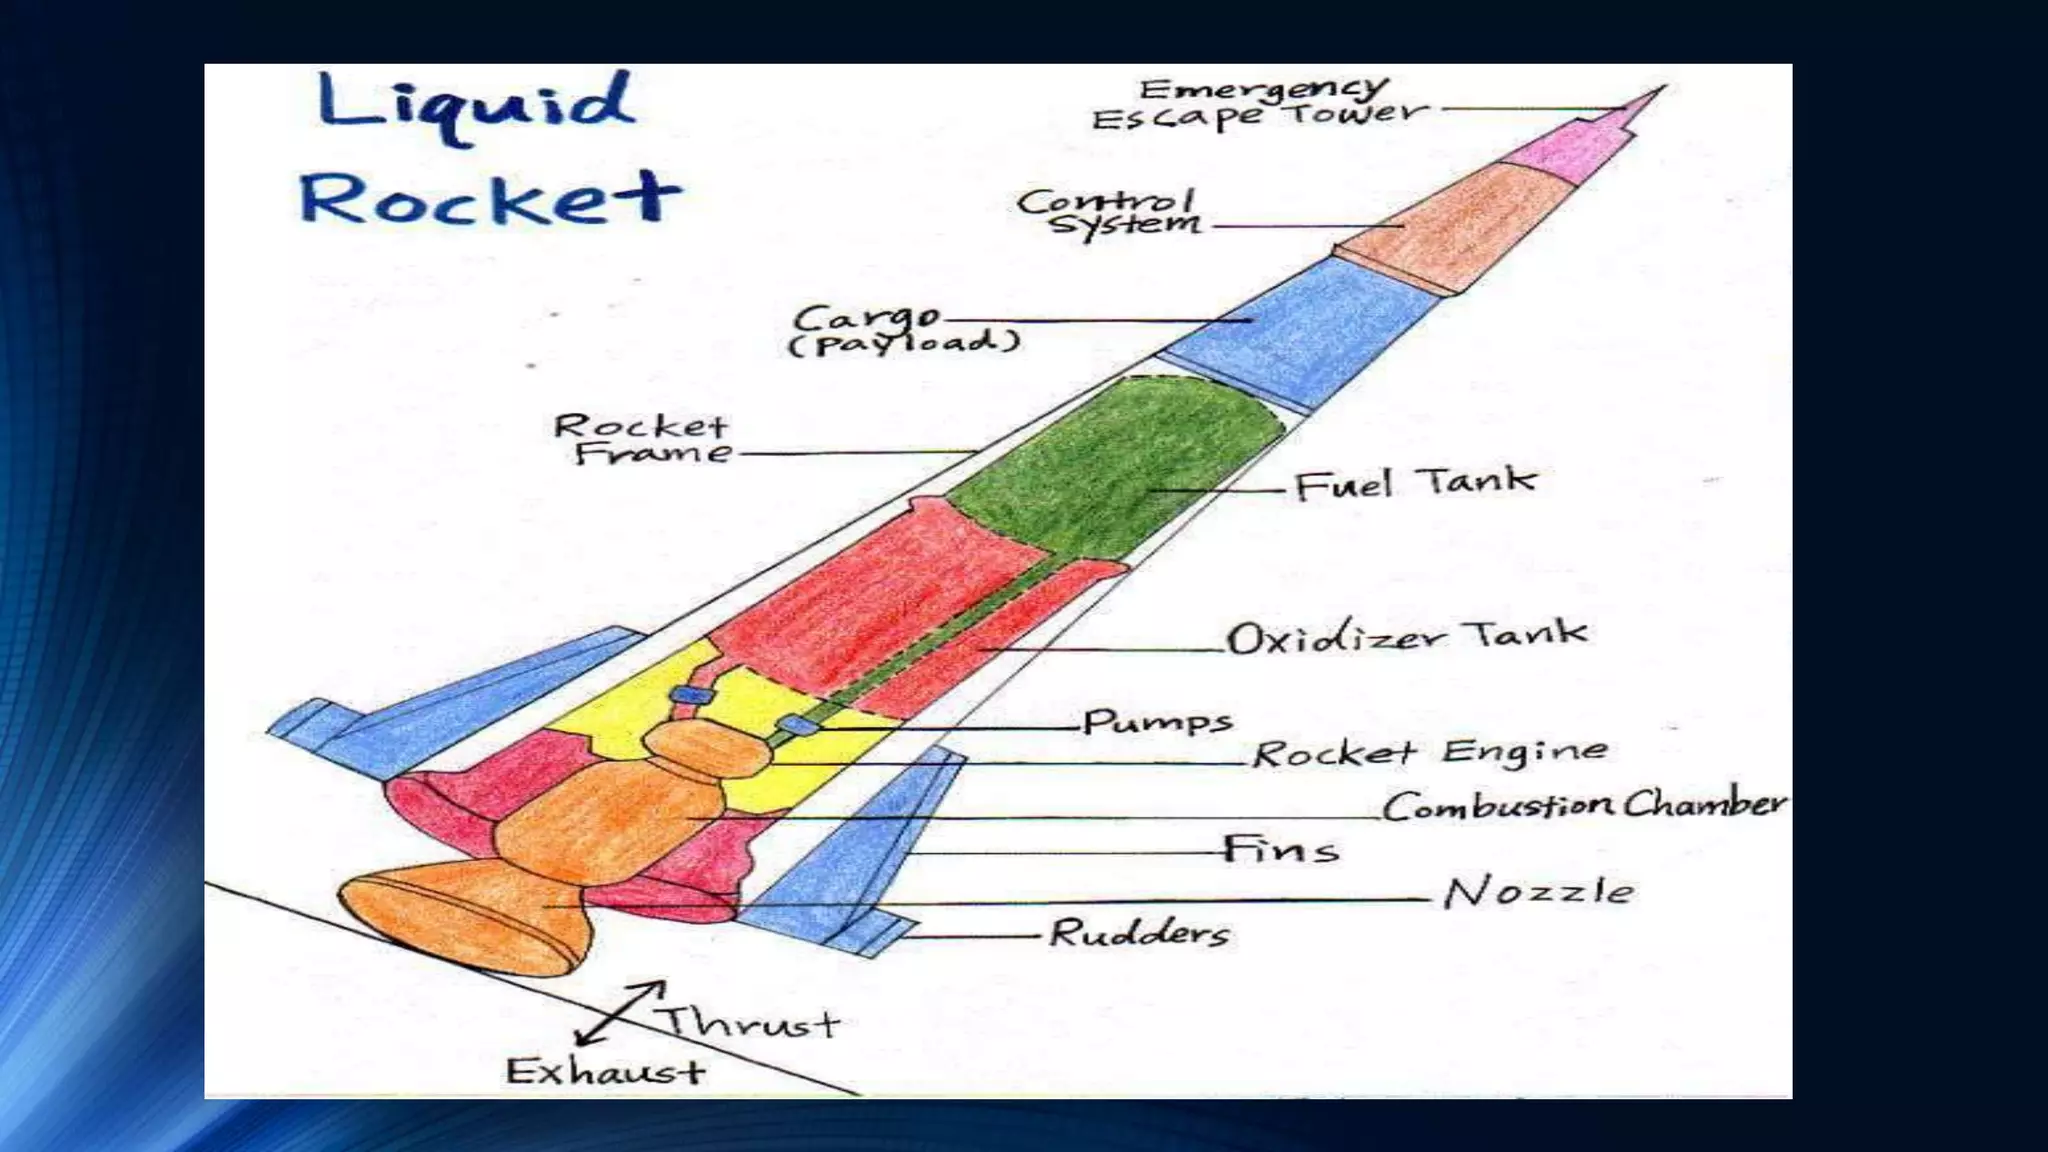 Liquid
Rocket
Emergency
Escape Tower
Control
System
Cargo
(Payload)
Rocket
Frame
Fuel Tank
Oxidizer Tank
Pumps
Rocket Engine
Combustion Chamber
Fins
Nozzle
Rudders
Thrust
Exhaust